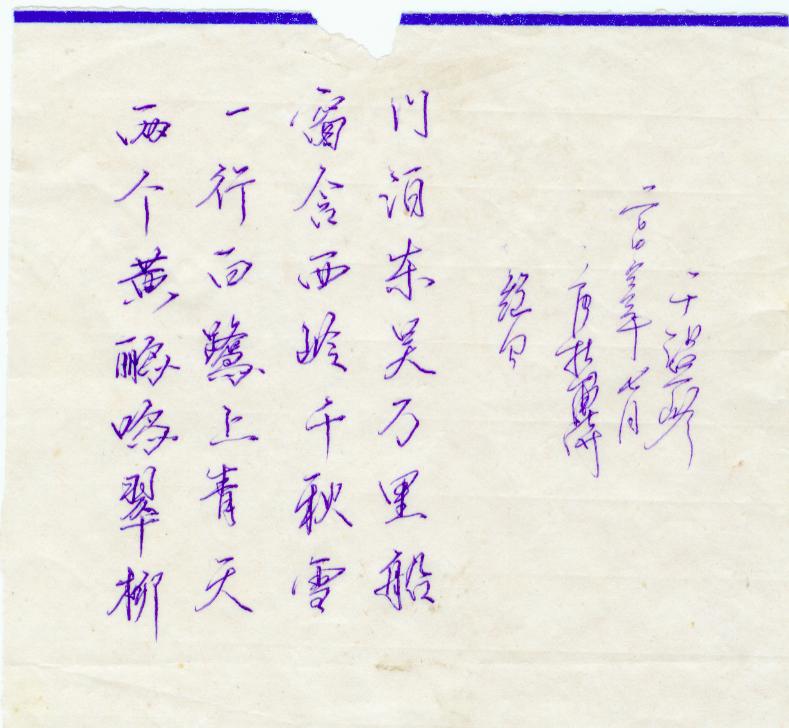 两个黄鹂鸣翠柳
一行白鹭上青天
窗含西岭千秋雪
门泊东吴万里船
绝句
唐杜甫诗
年七月